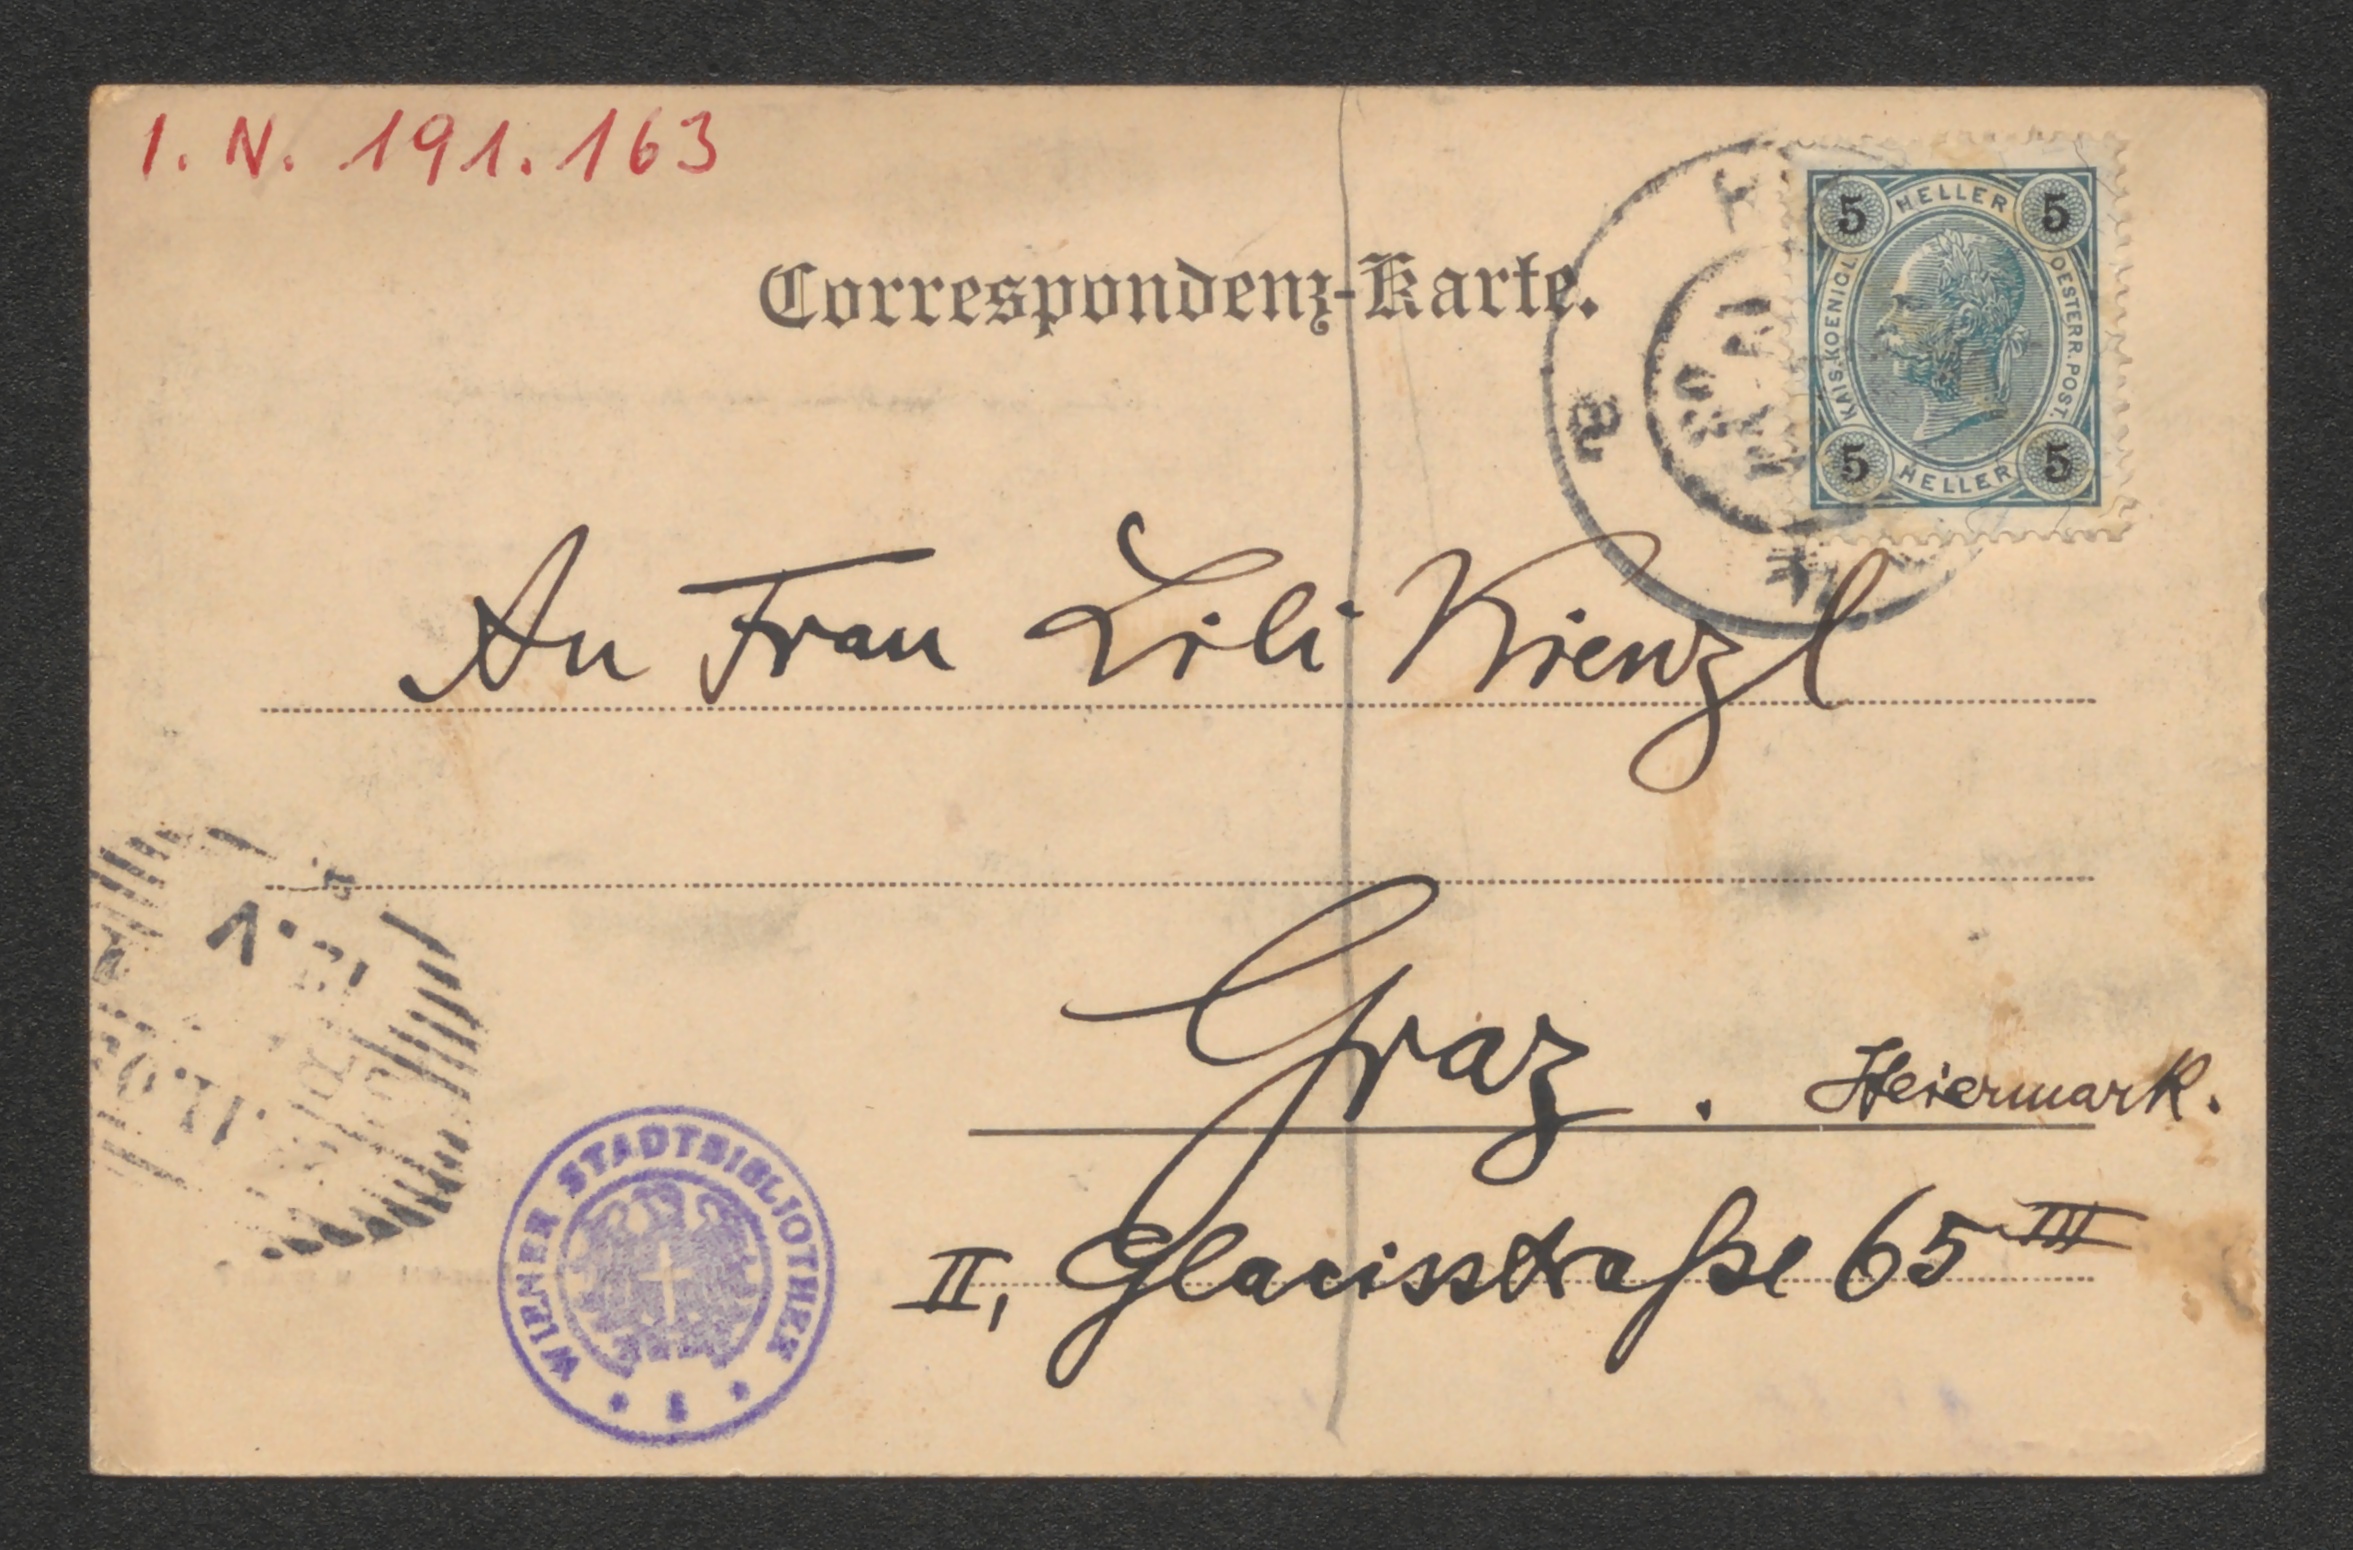 I. N. 191.163
Correspondenz-Karte.
5 HELLER 5
KAIS. KOENIGL. OESTERR. POST.
5 HELLER 5
An Frau Lili Kienzl
Graz. Steiermark.
II, Glacisstraße 65 III
WIENER STADTBIBLIOTHEK